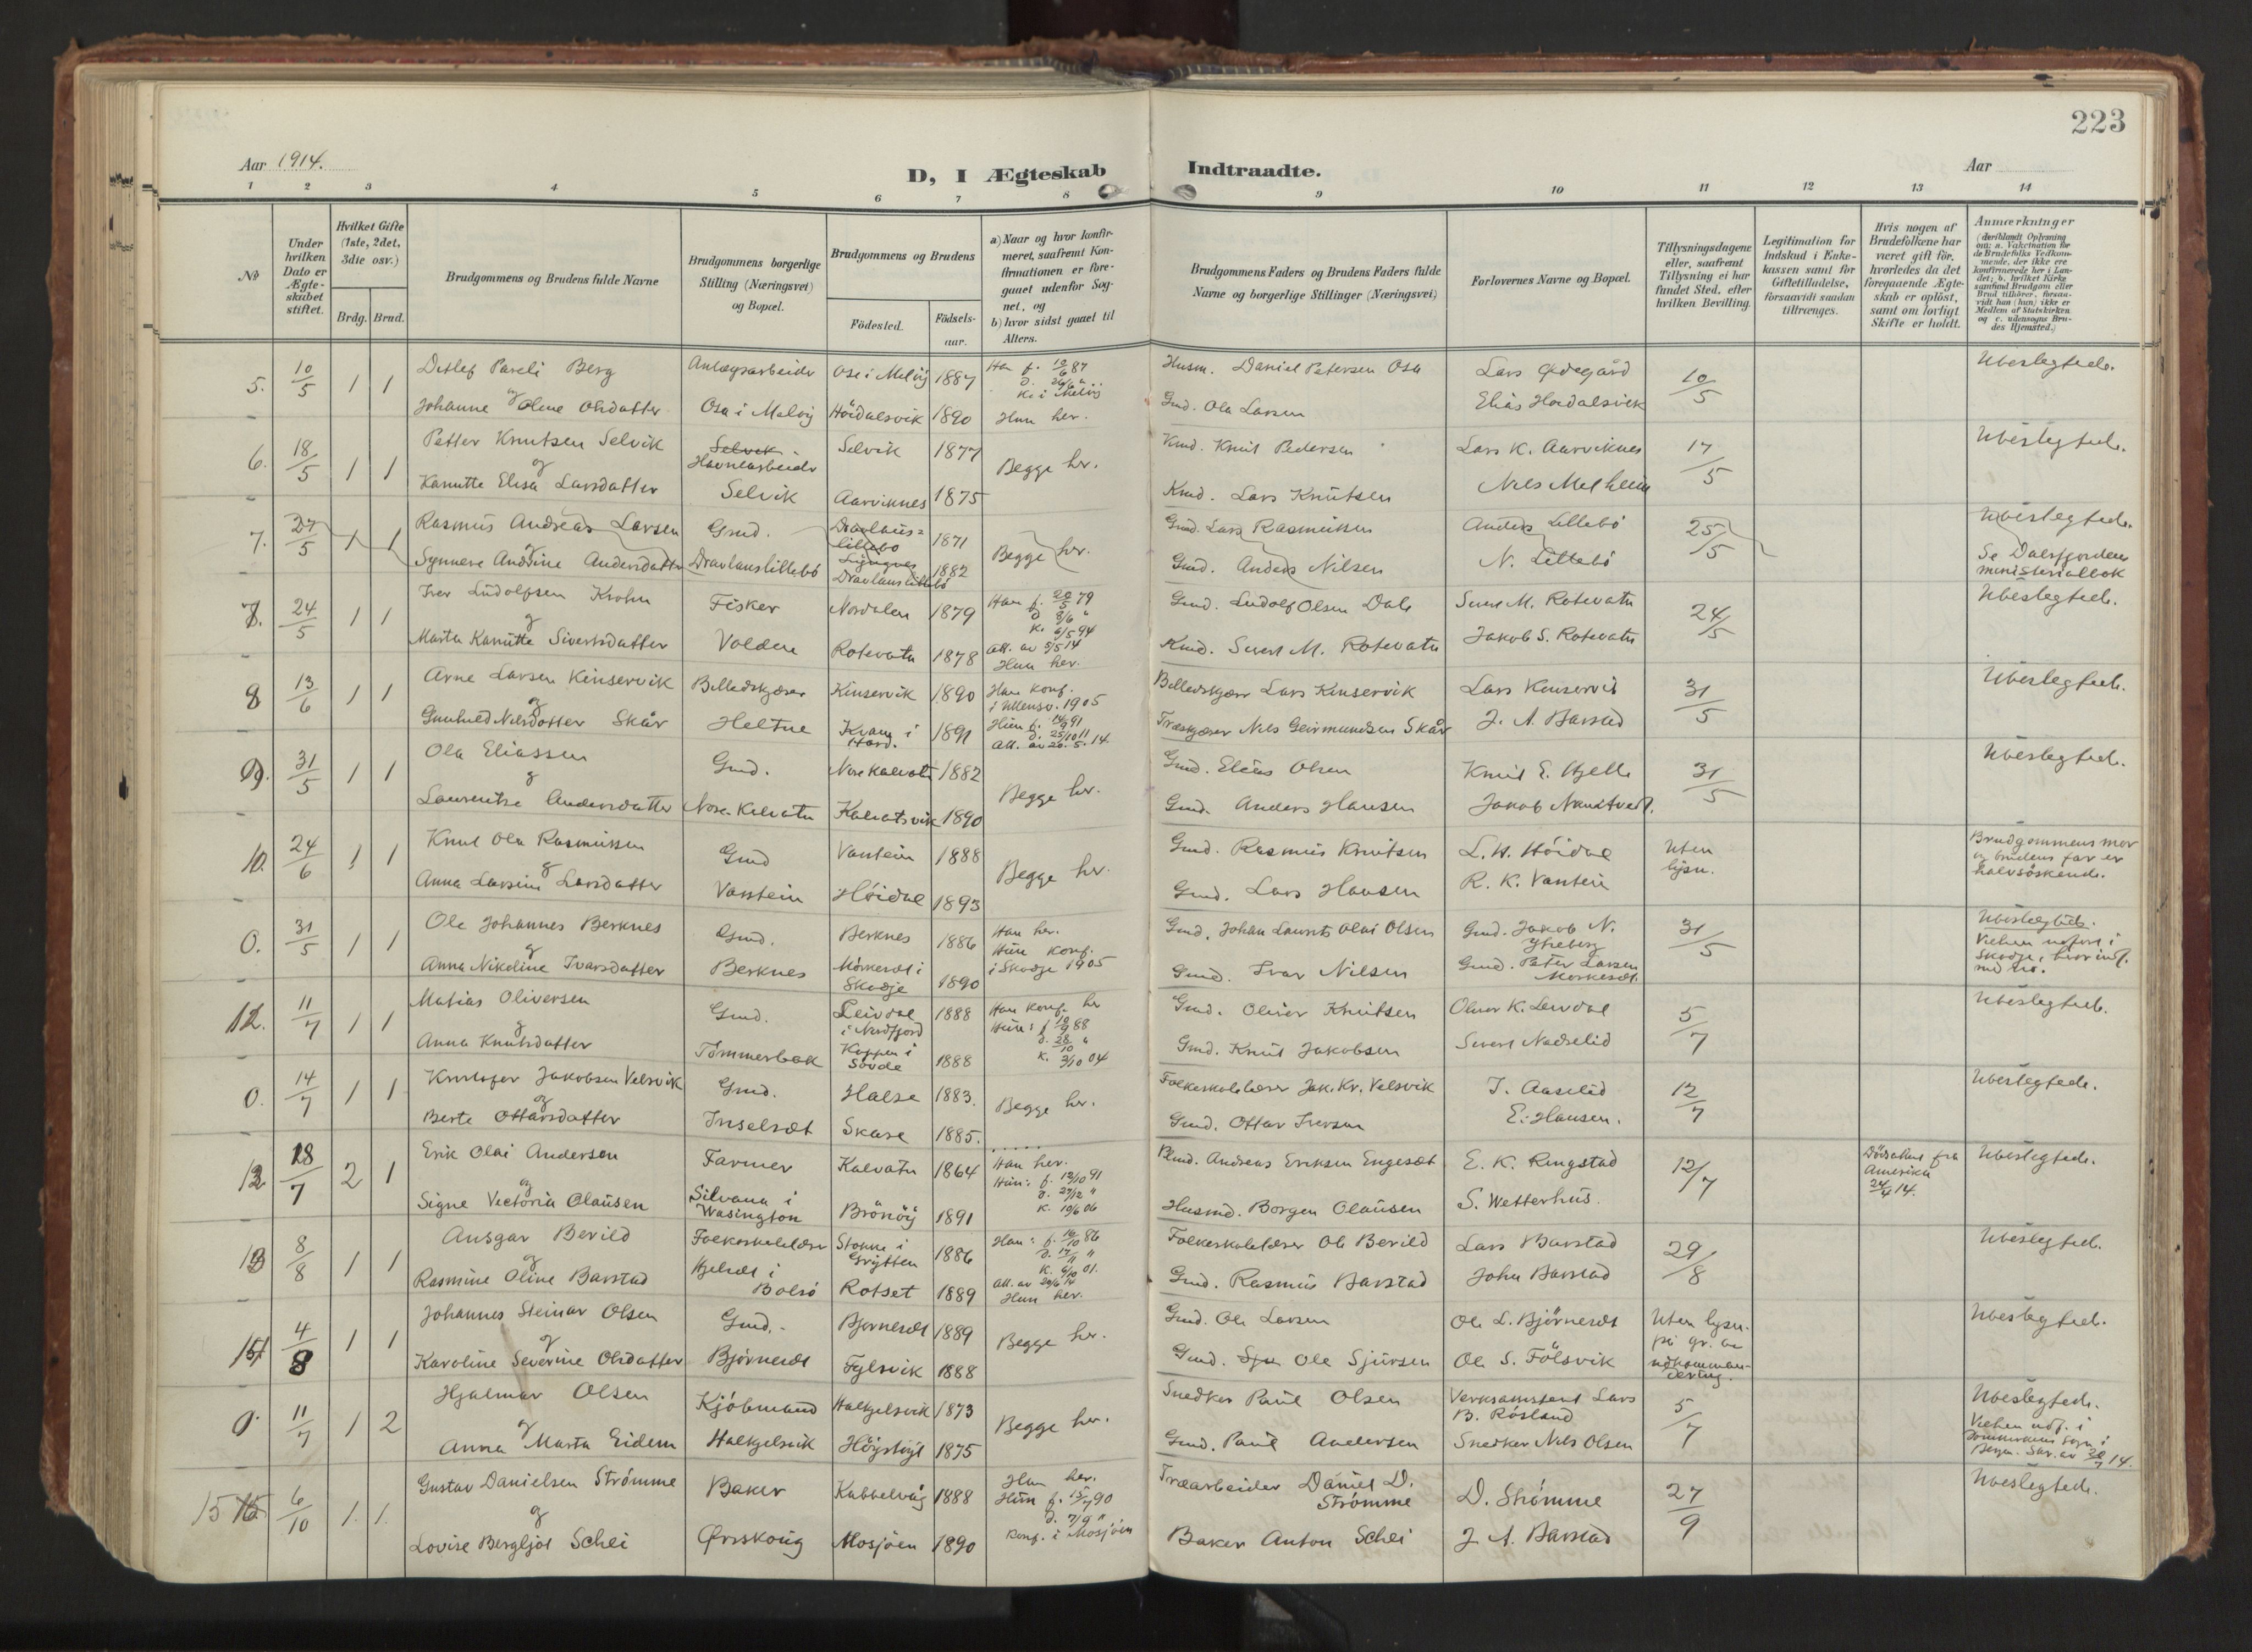 223
Aar 1914.
D, I Ægteskab Indtraadte.
Aar
1 2 3 4 5 6 7 8 9 10 11 12 13 14
No
Under hvilken Dato er Ægteskabet stiftet.
Hvilket Gifte (1ste, 2det, 3die osv.)
Brdg. Brud.
Brudgommens og Brudens fulde Navne
Brudgommens borgerlige Stilling (Næringsvei) og Bopæl.
Brudgommens og Brudens
Födested.
Födsels-aar.
a) Naar og hvor konfirmeret, saafremt Konfirmationen er foregaaet udenfor Sognet, og
b) hvor sidst gaaet til Alters.
Brudgommens Faders og Brudens Faders fulde Navne og borgerlige Stillinger (Næringsvei)
Forlovernes Navne og Bopæl.
Tillysningsdagene eller, saafremt Tillysning ei har fundet Sted, efter hvilken Bevilling.
Legitimation for Indskud i Enkekassen samt for Giftetilladelse, forsaavidt saadan tiltrænges.
Hvis nogen af Brudefolkene har været gift för, hvorledes da det foregaaende Ægteskab er oplöst, samt om lovligt Skifte er holdt.
Anmærkninger
(deriblandt Oplysning om: a. Vakcination for de Brudefolks Vedkommende, der ikke ere konfirmerede her i Landet; b. hvilket Kirkesamfund Brudgom eller Brud tilhörer, forsaavidt han (hun) ikke er Medlem af Statskirken og c. udensogns Brudes Hjemsted.)
5. 10/5 1 1 Detlef Pareli Berg Anlægsarbeider Osa i Melöy 1887 Han f. 10/6 87 Husm. Daniel Petersen Osa Lars Ødegård 10/5 Ubeslegtede.
K. i Melöy
og
Johanne Oline Olsdatter Osa i Meløy Höidalsvik 1890 Hun her. Gmd. Ola Larsen Elias Hovdalsvik
6. 18/5 1 1 Petter Knutsen Selvik Selvik Selvik 1877 Begge her. Kmd. Knut Pedersen Lars K. Aarviknes 17/5 Ubeslegtede.
Havnearbeider
og
Kanutte Elisa Larsdatter Selvik Aarviknes 1875 Kmd. Lars Knutsen Nils Melheim
7. 27/5 1 1 Rasmus Andreas Larsen Gmd. 1871 Begge her. Gmd. Lars Rasmussen Anders Lillebö 25/5 Ubeslegtede.
og
Synneve Andrine Andersdatter Dravlauslillebö Dravlauslillebö 1882 Gmd. Anders Nilsen N. Lillebö Se Dalsfjorden ministerialbok
7. 24/5 1 1 Iver Ludolfsen Krohn Fisker Nordalen 1879 Han f. 20/5 79 Gmd. Ludolf Olsen Dale Sivert M. Rotevatn 24/5 Ubeslegtede.
K. 6/5 94
og
Marta Kanutte Sivertsdatter Volden Rotevatn 1878 Att. av 5/5 14 Kmd. Sivert M. Rotevatn Jakob S. Rotevatn
Hun her.
8 13/6 1 1 Arne Larsen Kinservik Billedskjærer Kinservik 1890 Han konf. i Ullensv. 1905 Billedskjærer Lars Kinservik Lars Kinservik 31/5 Ubeslegtede.
og
Gunhild Nilsdotter Skår Heltne Kvam i Hard. 1891 Hun f. 14/9 91 Træskjærer Nils Geirmundsen Skår J. A. Barstad
d. 25/10 11
Att. av 26.5.14.
9. 31/5 1 1 Ola Eliassen Gmd. Nore Kalvatn 1882 Begge her. Gmd. Elias Olsen Knut E. Hjelle 31/5 Ubeslegtede.
og
Laurentse Andersdatter Nore Kalvatn Kalvatsvik 1890 Gmd. Anders Hansen Jakob Nautvedt.
10. 24/6 1 1 Knut Ola Rasmussen Gmd Vanstein 1888 Begge her. Gmd. Rasmus Knutsen L. H. Höidal Uten lysn. Brudgommens mor og brudens far er halvsöskende.
og
Anna Larsine Larsdatter Vanstein Höidal 1893 Gmd. Lars Hansen R. K. Vanstein
0. 31/5 1 1 Ole Johannes Berknes Gmd. Berknes 1886 Han her. Gmd. Johan Laurits Olai Olsen Gmd. Jakob N. Ytreberg 31/5 Ubeslegtede.
Vielsen utfört i Skodje, hvor indf. med no.
og
Anna Nikoline Ivarsdatter Berknes Mörkeset i Skodje 1890 Hun konf. i Skodje 1905 Gmd. Ivar Nilsen Gmd. Peter Larsen Morkeset
12. 11/7 1 1 Matias Oliversen Gmd. Leivdal i Nordfjord 1888 Han konf. her Gmd. Oliver Knutsen Oliver K. Leivdal 5/7 Ubeslegtede.
og
Anna Knutsdatter Tömmerbak Koppen i Sövde 1888 Hun: f. 10/9 88 Gmd. Knut Jakobsen Sivert Nadselid
d. 28/10 "
K. 2/10 04
0. 14/7 1 1 Kristofer Jakobsen Velsvik Gmd. Halse 1883. Begge her. Folkeskolelærer Jak. Kr. Velsvik I. Aaselid 12/7 Ubeslegtede.
og
Berte Ottarsdatter Inselset Skare 1885. Gmd. Ottar Iversen E. Hansen.
18/7 2 1 Erik Olai Andersen Farmer Kalvatn 1864 Han her. Andreas Eriksen Engeset E. K. Ringstad 12/7 Dödsattest fra Amerika 24/4 14. Ubeslegtede.
og
Signe Victoria Olausen Silvana i Wasington Brönöy 1891 Hun: f. 19/10 91 Husmd. Borgen Olausen S. Wetterhus.
d. 27/12 "
K. 10/6 06
13 8/8 1 1 Ansgar Berild Folkeskolelærer Stokke i Grytten 1886 Han: f. 16/10 86 Folkeskolelærer Ole Berild Lars Barstad 29/8 Ubeslegtede.
d. 14/11 "
K. 6/10 01.
og
Rasmine Oline Barstad Hjelset i Bolsö Rotset 1889 Att. av 29/6 14 Gmd. Rasmus Barstad John Barstad
Hun her.
4/8 1 1 Johannes Steinar Olsen Gmd. Bjørneset 1889 Begge her. Gmd. Ole Larsen Ole L. Björneset Uten lysn. på gr. av utkommandering. Ubeslegtede.
og
Karoline Severine Olsdatter Björneset Fylsvik 1888 Gmd. Ole Sjursen Ole S. Fölsvik
0 11/7 1 2 Hjalmar Olsen Kjöbmand Halkjelsvik 1873 Begge her. Snedker Paul Olsen Lars B. Rösland 5/7 Ubeslegtede.
Vielsen udf. i Domkirkens sogn i Bergen. Skr. av 20/7 14.
og
Anna Marta Eidem Halkjelsvik 1875 Gmd. Paul Andersen Snedker Nils Olsen
15 6/10 1. 1. Gustav Danielsen Strömme Baker Kabbelvåg 1888 Han her. Træarbeider Daniel D. Strömme D. Strömme 27/9 Ubeslegtede.
og
Lovise Bergljot Schei Ørskoug Mosjöen 1890 Hun f. 15/7 90 Baker Anton Schei J. A. Barstad
d. 7/9 "
Konf. i Mosjöen